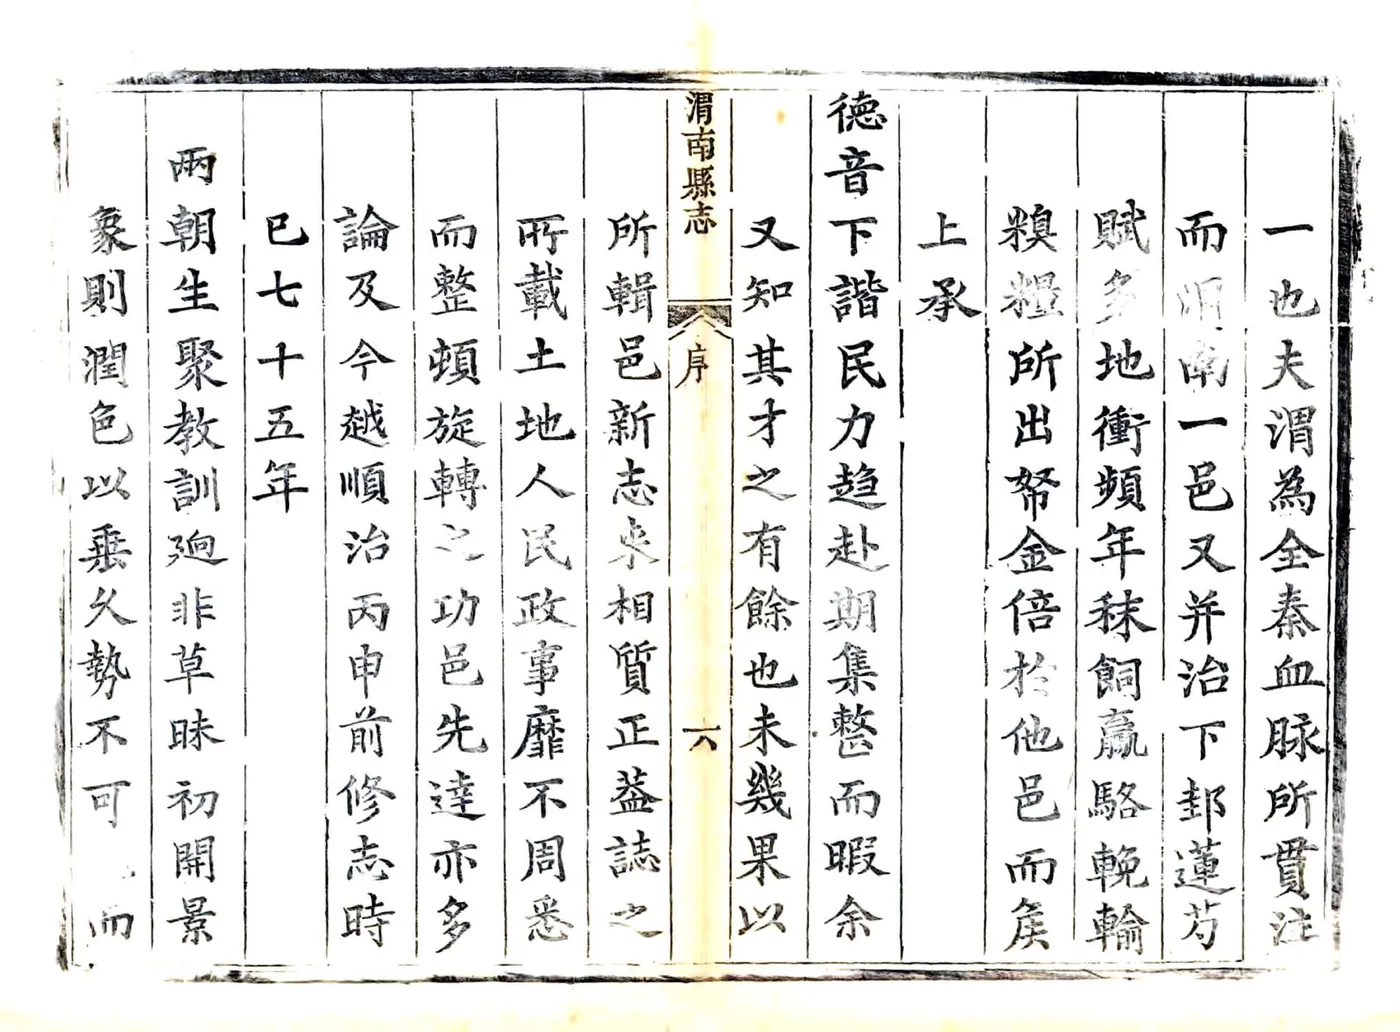 一也夫渭為全秦血脉所貫注
而渭南一邑又并治下邽蓮芍
賦多地衝頻年秣飼羸駱輓輸
糗糧所出帑金倍於他邑而矦
上承
德音下諧民力趋赴期集整而暇余
又知其才之有餘也未幾果以
渭南縣志
序
六
所輯邑新志來相質正葢誌之
所載土地人民政事靡不周悉
而整頓旋轉之功邑先逹亦多
論及今越順治丙申前修志時
已七十五年
兩朝生聚教訓廻非草昧初開景
象則潤色以垂久勢不可而